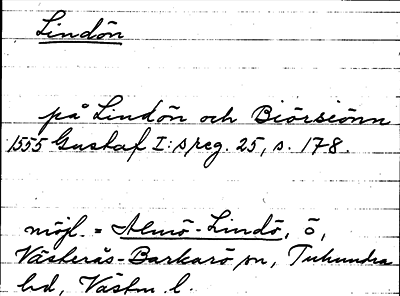 Lindön
på Lindön och Biörsiönn
1555 Gustaf I:s reg. 25, s. 178.
möjl. = Almö-Lindö, ö,
Västerås-Barkarö sn, Tuhundra
hd, Västm. l.